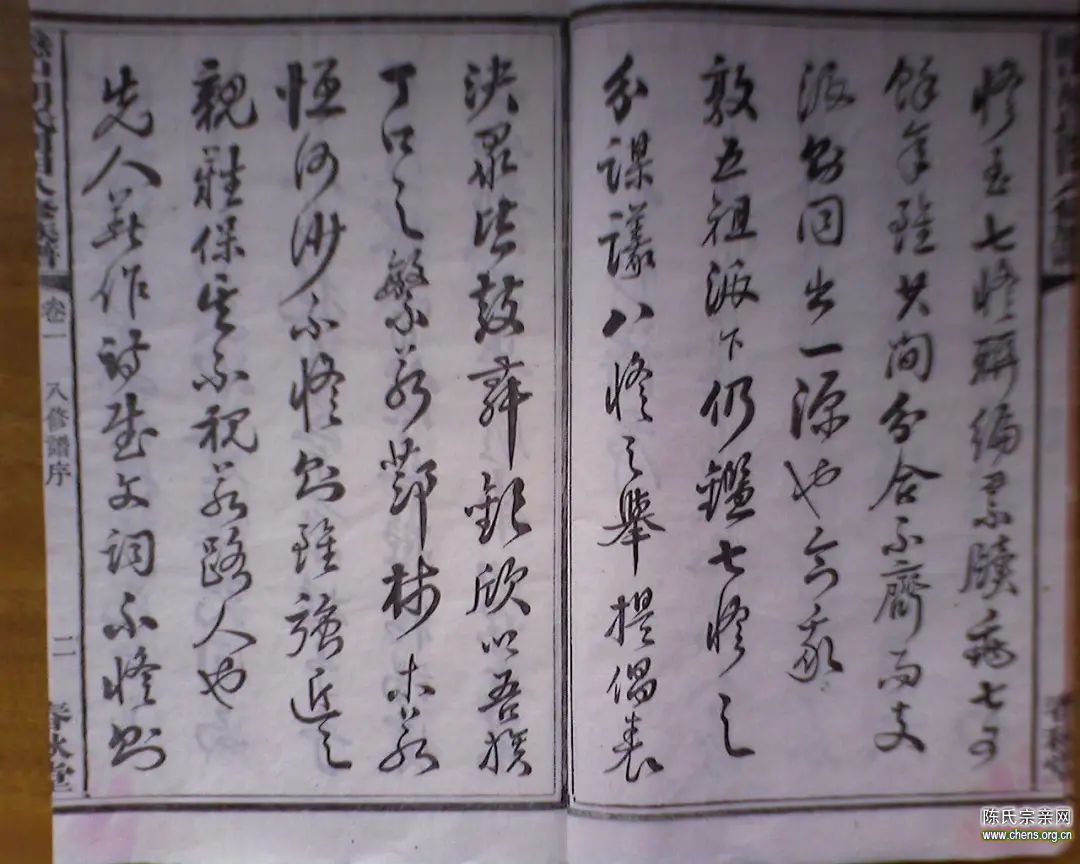 修至七修聯編累牘垂七百
餘年雖其間分合不齊而支
派則同出一源也今我
敦五祖派下仍鑑七修之
分謀議八修之舉提倡表
決眾皆鼓舞歡欣以吾族
丁口之繁若鄧林木若
恒河沙不修則雖強近之
親難保其不視若路人也
先人作詩文詞不修則
卷一 八修譜序 二 春秋堂
陈氏宗亲网
www.chens.org.cn